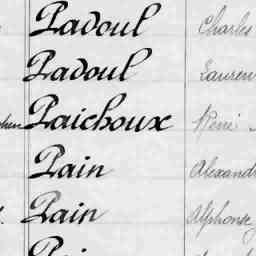 Padoul Charles
Padoul Lauren
Paichoux René
Pain Alexand
Pain Alphonse